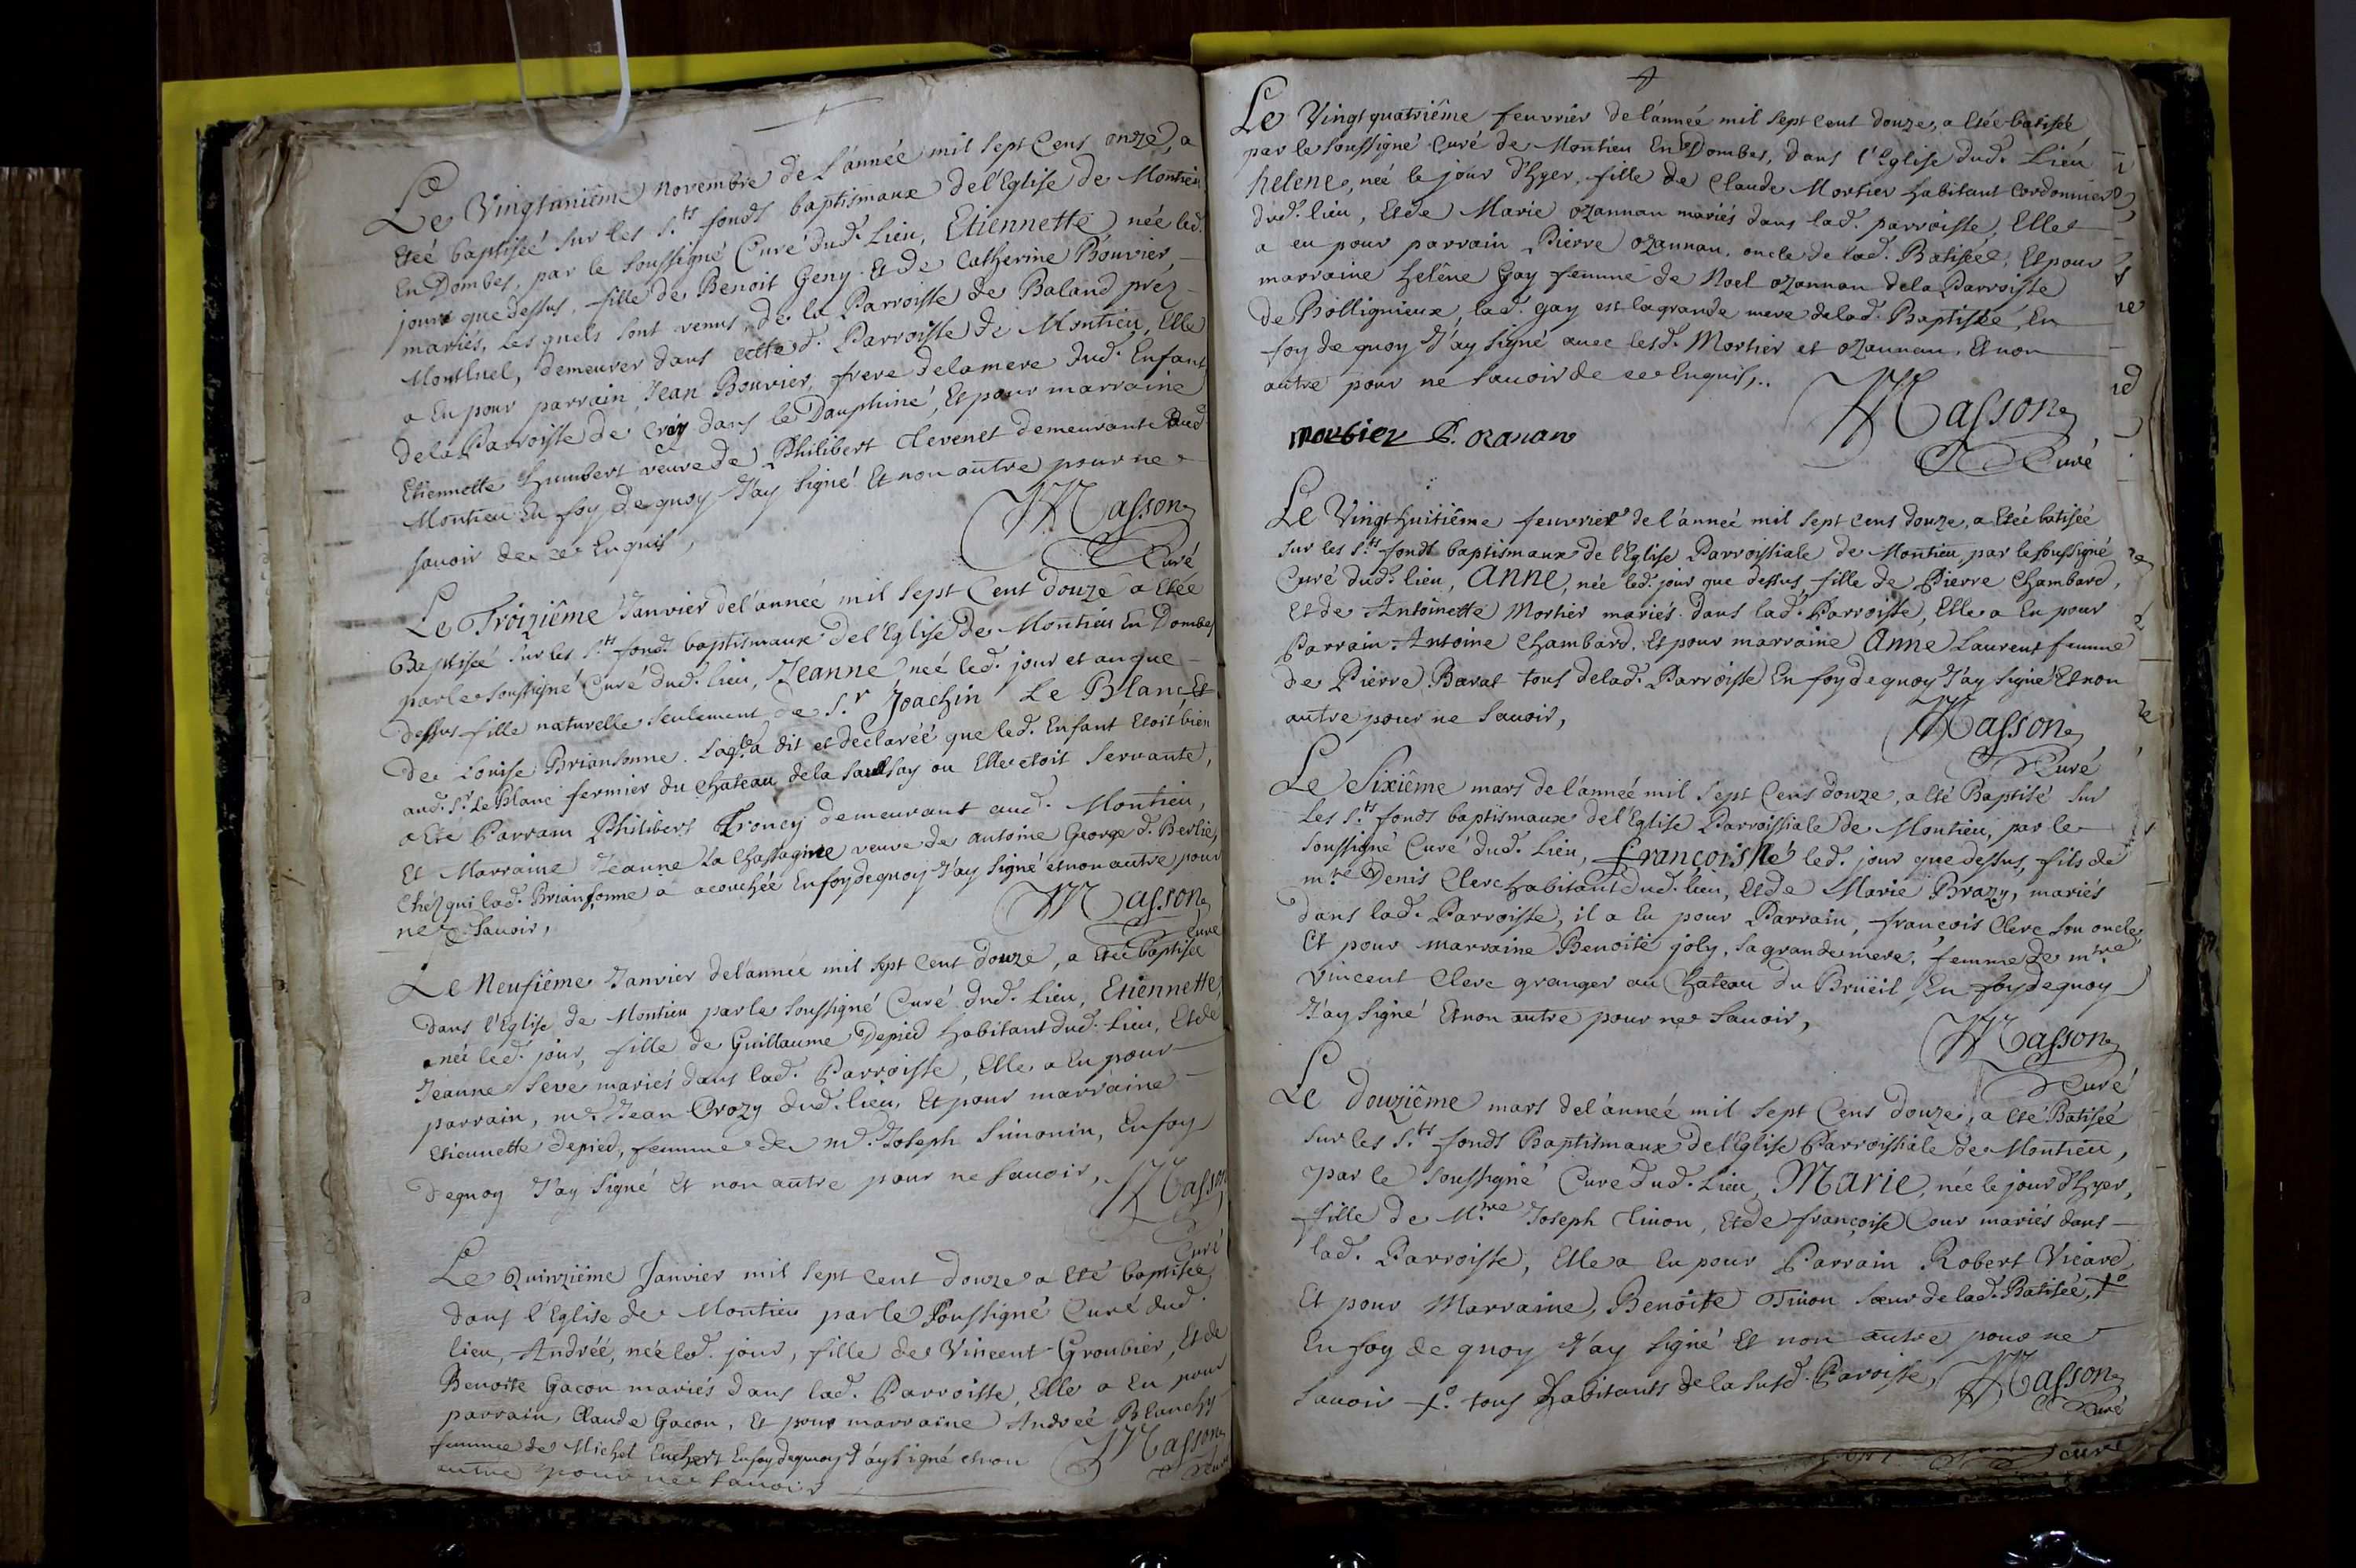 Le Vingtunième novembre de l'année mil sept Cens onze, a
Etéé baptiséé sur les S.ts fonds baptismaux de l'Eglise de Montieu
En Dombes, par le soussigné Curé dud. Lieu, Etiennette née led.
jour que dessus, fille de Benoit Geny Et de Catherine Bouvier
mariés, Les quels sont venus de la Parroisse de Baland préz
Montluel, demeurer dans cette d. Parroisse de Montieu, Elle
a Eu pour parrain Jean Bouvier, frere dela mere dud. Enfant
dela Parroisse de dans le Dauphiné, Et pour marraine
Etiennette Humbert veuve de Philibert Clevenet demeurante aud.
Montieu En foy de quoy J'ay signé Et non autre pour ne
savoir de ce Enquis,
Masson
Curé
Le Troizième Janvier de l'année mil sept Cent douze a Etéé
Baptiséé sur les S.ts fonds baptismaux de l'Eglise de Montieu En Dombes
par le soussigné Curé dud. lieu, Jeanne néé led. jour et an que
dessus fille naturelle seulement de S.r Joachin Le Blanc Et
de Louise Briansonne. Laq.le a dit et declaréé que led. Enfant Etoit bien
aud. S.r Le Blanc fermier du Chateau dela Saulsay ou Elle etoit servante,
a Ete Parrain Philibert Troncy demeurant aud. Montieu,
Et Marraine Jeanne La Chassagne veuve de antoine George d. Berlie,
Chéz qui lad. Briansonne a acouchéé En foy de quoy J'ay signé et non autre pour
ne savoir,
Masson
Curé
Le Neufième Janvier de l'année mil sept Cent douze, a Etéé baptiséé
dans l'Eglise de Montieu par le soussigné Curé dud. Lieu, Etiennette
néé led. jour, fille de Guillaume Depied habitant dud. Lieu, Et de
Jeanne Seve mariés dans lad. Parroisse, Elle a Eu pour
parrain, m.e Jean Crozy dud. lieu, Et pour marraine
Etiennette depied, femme de m.e Joseph Simonin, En foy
de quoy J'ay signé Et non autre pour ne savoir,
Masson
Curé
Le Quinzième Janvier mil sept Cent douze a Eté baptiséé
dans l'Eglise de Montieu par le soussigné Curé dud.
lieu, Andréé, néé led. jour, fille de Vincent Groubier, Et de
Benoite Gacon mariés dans lad. Parroisse, Elle a Eu pour
parrain, Claude Gacon, Et pour marraine Andreé Blanchy
femme de Michel En foy de quoy J'ay signé et non
autre pour ne savoir
Masson
Curé
Le Vingt quatrième feuvrier de l'année mil sept Cent douze, a Etéé batiséé
par le soussigné Curé de Montieu En Dombes, dans l'Eglise dud. Lieu
helene, néé le jour d'hyer, fille de Claude Mortier habitant Cordonnier
dud. lieu, Et de Marie ozannan mariés dans lad. parroisse, Elle
a eu pour parrain Pierre ozannan, oncle de lad. Batiséé, Et pour
marraine helène Gay femme de Noel ozannan dela Parroisse
de Bollignieux, lad. gay est la grande mere de lad. Baptiséé, En
foy de quoy J'ay signé avec lesd. Mortier et ozannan, Et non
autre pour ne savoir de ce Enquis,..
Masson
Curé
mortier P. ozanan
Le Vingt huitième feuvrier de l'année mil sept Cens douze, a Etéé batiséé
sur les S.ts fonds baptismaux de l'Eglise Parroissiale de Montieu, par le soussigné
Curé dud. lieu, Anne, née led. jour que dessus, fille de Pierre Chambard,
Et de Antoinette Mortier mariés dans lad. Parroisse, Elle a Eu pour
Parrain Antoine Chambard, Et pour marraine Anne Laurent femme
de Pierre Barat tous delad. Parroisse En foy de quoy J'ay signé Et non
autre pour ne savoir,
Masson
Curé
Le Sixième mars de l'année mil sept Cens douze, a Eté Baptisé sur
Les S.ts fonds baptismaux de l'Eglise Parroissiale de Montieu, par le
soussigné Curé dud. Lieu, françois Né led. jour que dessus, fils de
m.re Denis Clerc habitant dud. lieu, Et de Marie Brazy, mariés
dans lad. Parroisse, il a Eu pour Parrain, françois Clerc son oncle,
Et pour marraine Benoite joly, sa grande mere, femme de m.re
Vincent Clerc granger au Chateau du Brüeil En foy de quoy
J'ay signé Et non autre pour ne savoir,
Masson
Curé
Le douzième mars de l'année mil sept Cens douze, a Eté Batiséé
sur les S.ts fonds Baptismaux de l'Eglise Parroissiale de Montieu,
par le soussigné Curé dud. Lieu, Marie, néé le jour d'hyer,
fille de M.re Joseph Tinon, Et de françoise Cour mariés dans
lad. Parroisse, Elle a Eu pour Parrain Robert Vicard
Et pour Marraine, Benoite Tinon sœur de lad. Batiséé, +o
En foy de quoy J'ay signé Et non autre pour ne
savoir +o tous habitants de la susd. Paroisse,
Masson
Curé